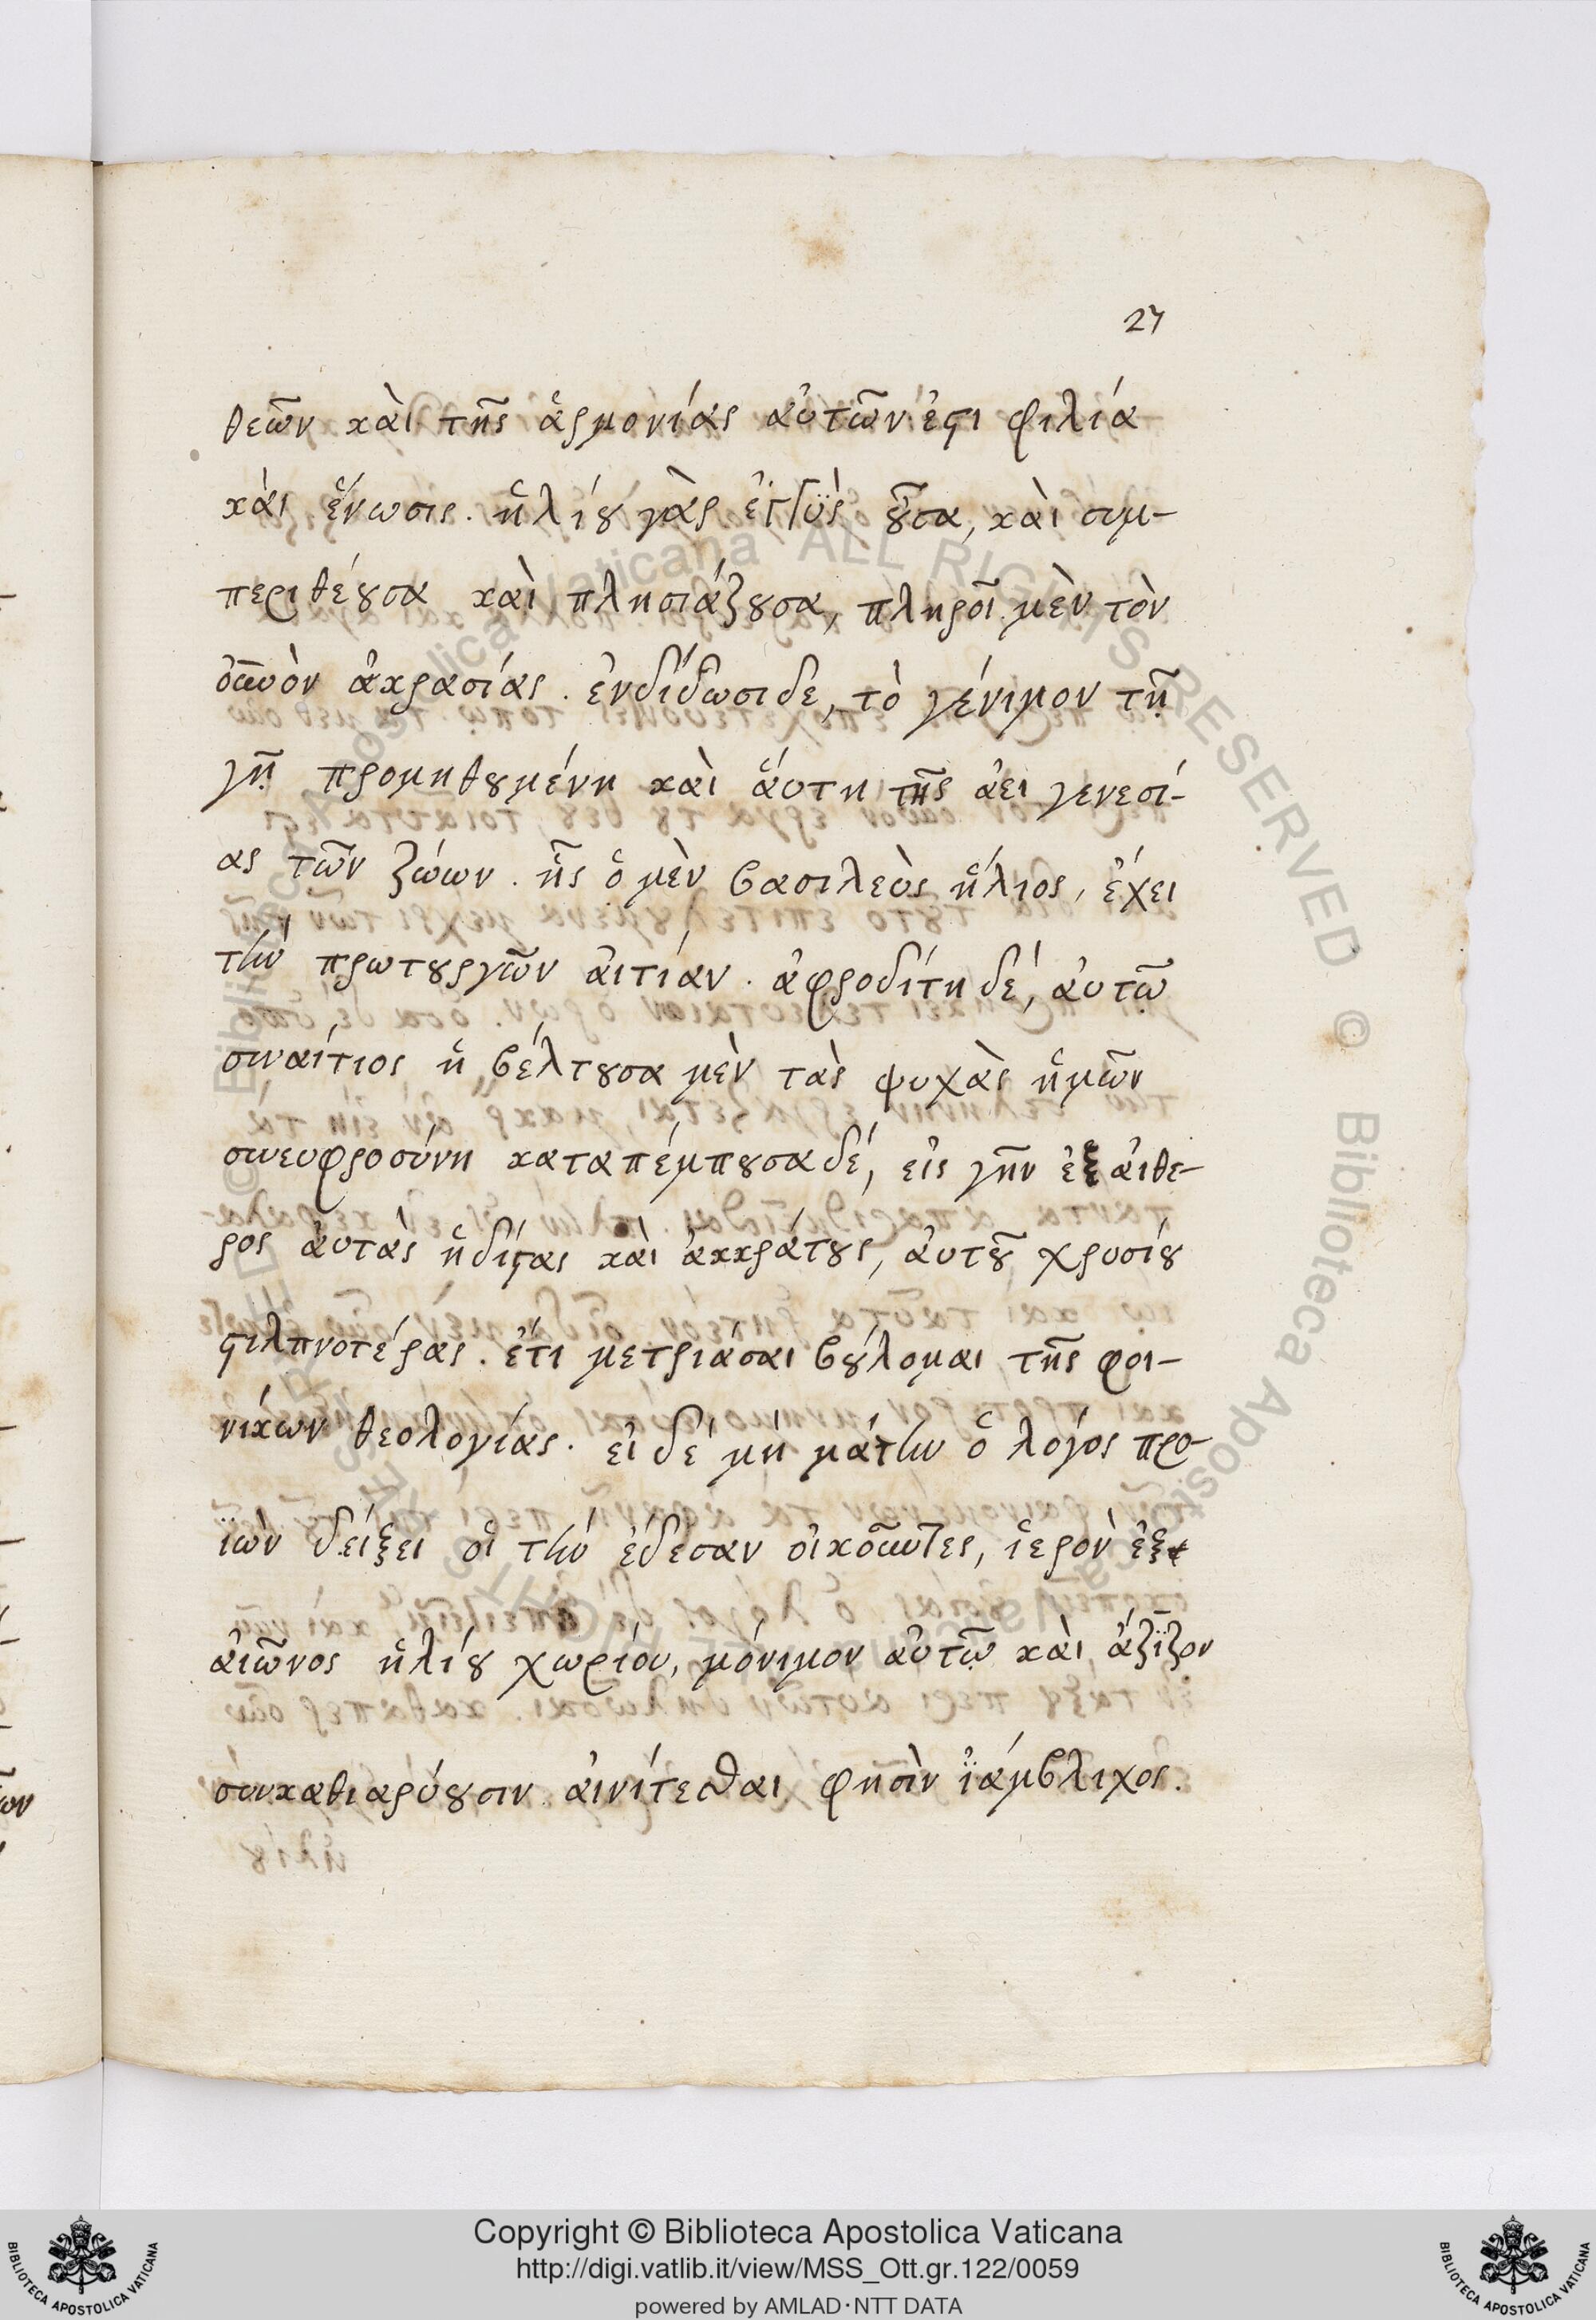 27
θεῶν καὶ τῆς ἁρμονίας αὐτῶν ἐστι φιλία
καὶ ἕνωσις. ἡλίου γὰρ ἐγγῢς οὖσα, καὶ συμ-
περιθέουσα καὶ πλησιάζουσα, πληροῖ μὲν τὸν
οὐνὸν ἀκρασίας. ἐνδίδωσι δὲ, τὸ γένιμον τῇ
γῇ προμηθουμένη καὶ ἅυτη τῆς ἀει γενεσί-
ας τῶν ζώων. ἧς ὁ μὲν βασιλεὺς ἥλιος, ἔχει
τὴν πρωτουργῶν ἀιτίαν. ἀφροδίτη δέ, ἀυτῷ
συναίτιος ἡ θέλγουσα μὲν τὰς ψυχὰς ἡμῶν
συνευφροσύνη καταπέμπουσα δέ, εἰς γῆν ἐξ ἀιθέ-
ρος ἀυτὰς ἡδίστας καὶ ἀκκράτους, ἀυτοῦ χρυσίου
στιλπνοτέρας. ἔτι μετριάσαι βούλομαι τῆς φοι-
νίκων θεολογίας. ἐι δέ μὴ μάτην ὁ λόγος προ-
ϊὼν δείξει οἱ τὴν ἔδεσαν οἰκοῦντες, ἱερὸν ἐξ
ἀιῶνος ἡλίου χωρίου, μόνιμον ἀυτῷ καὶ ἄζϊζον
συνκαθιδρύουσιν ἀινίτεσθαι φησὶν ἰάμβλιχος.
Copyright © Biblioteca Apostolica Vaticana
http://digi.vatlib.it/view/MSS_Ott.gr.122/0059
powered by AMLAD·NTT DATA
BIBLIOTECA APOSTOLICA VATICANA
BIBLIOTECA APOSTOLICA VATICANA